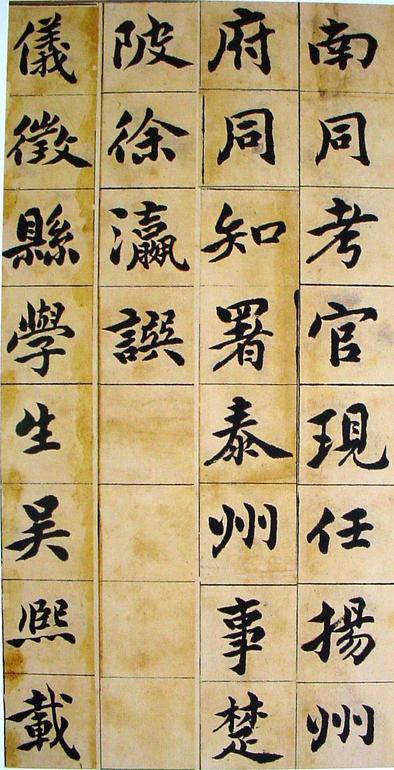 南同考官現任揚州
府同知署泰州事楚
陂徐瀛譔
儀徵縣學生吳熙載